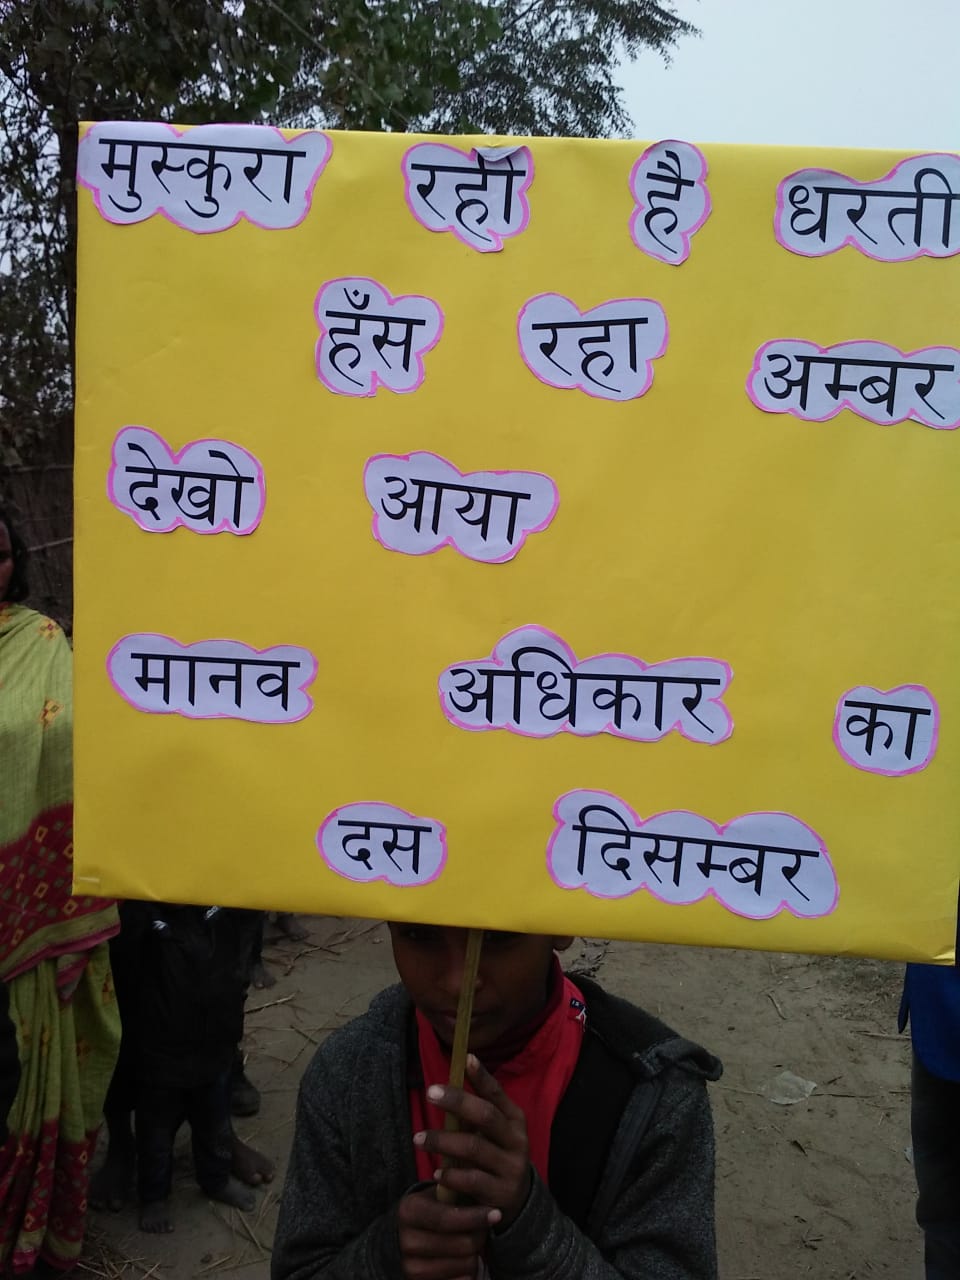 मुस्कुरा रही है धरती
हँस रहा अम्बर
देखो आया
मानव अधिकार का
दस दिसम्बर